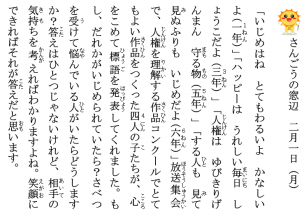 さんごうの窓辺　二月一日（月）
「いじめはね　とてもわるいよ　かなしい
よ（一年）」「ハッピーは　うれしい毎日　し
ょうこだよ（三年）」「人権は　ゆびきりげ
んまん　守る物（五年）」「するも人　見て
見ぬふりも　いじめだよ（六年）」放送集会
で、人権を理解する作品コンクールでとて
もよい作品をつくった四人の子たちが、心
をこめて標語を発表してくれました。も
し、だれかがいじめられていたら？さべつ
を受けて悩んでいる人がいたらどうします
か？答えはひとつじゃないけれど、相手の
気持ちを考えればわかりますよね。笑顔に
できればそれが答えだと思います。